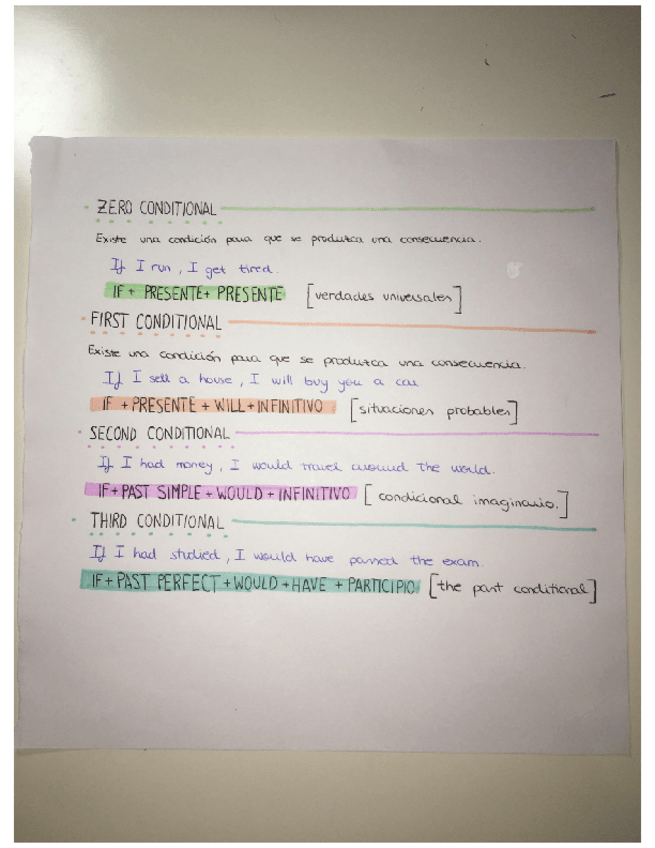 · ZERO CONDITIONAL
Existe una condición para que se produzca una consecuencia.
If I run, I get tired.
IF + PRESENTE + PRESENTE [verdades universales]
· FIRST CONDITIONAL
Existe una condición para que se produzca una consecuencia.
If I sell a house, I will buy you a car
IF + PRESENTE + WILL + INFINITIVO [situaciones probables]
· SECOND CONDITIONAL
If I had money, I would travel around the world.
IF + PAST SIMPLE + WOULD + INFINITIVO [condicional imaginario.]
· THIRD CONDITIONAL
If I had studied, I would have passed the exam.
IF + PAST PERFECT + WOULD + HAVE + PARTICIPIO [the past conditional]